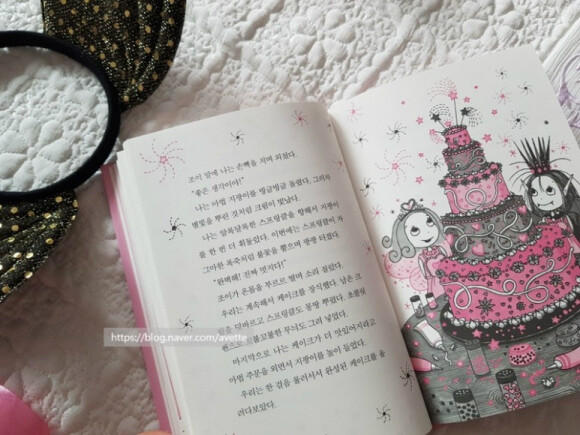 조이 말에 나는 손뼉을 치며 외쳤다.
"좋은 생각이야!"
나는 마법 지팡이를 빙글빙글 돌렸다. 그러자
별빛을 뿌린 것처럼 크림이 빛났다.
나는 알록달록한 스프링클을 향해서 지팡이
를 한 번 더 휘둘렀다. 이번에는 스프링클이 자
그마한 폭죽처럼 불꽃을 뿜으며 팡팡 터졌다.
"완벽해! 진짜 멋지다!"
조이가 온몸을 부르르 떨며 소리 질렀다.
우리는 계속해서 케이크를 장식했다. 남은 크
림을 더 바르고 스프링클도 몽땅 뿌렸다. 초콜릿
펜으로 꼬불꼬불한 무늬도 그려 넣었다.
마지막으로 나는 케이크가 더 맛있어지라고
마법 주문을 외면서 지팡이를 높이 들었다.
우리는 한 걸음 물러서서 완성된 케이크를 올
려다보았다.
https://blog.naver.com/avette